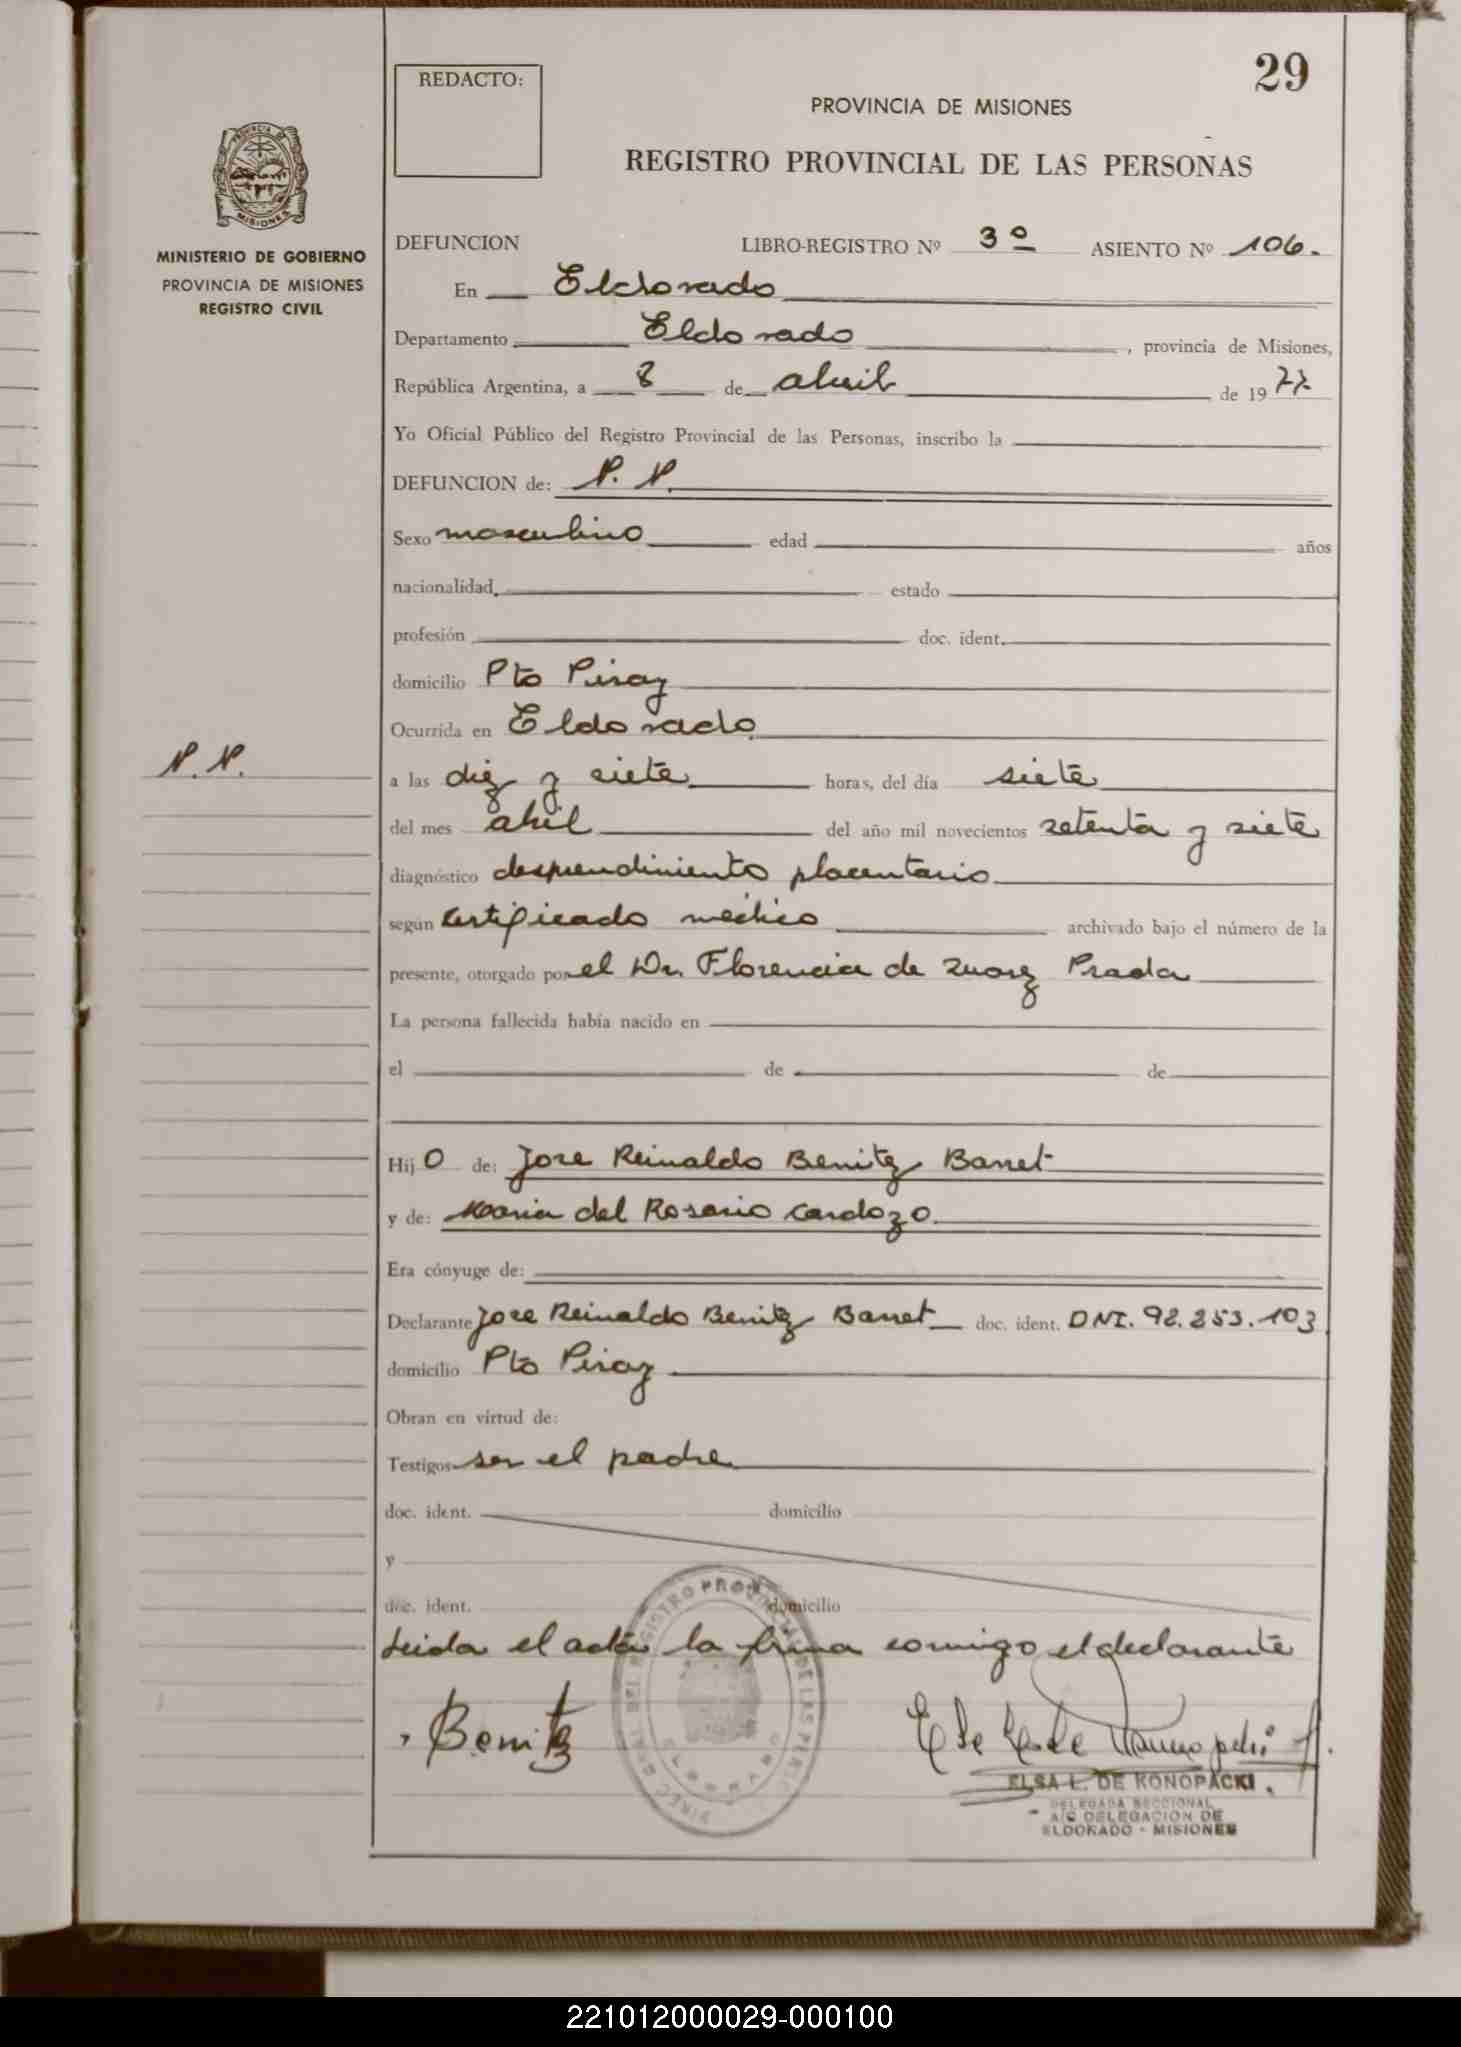 29
REDACTO:
PROVINCIA DE MISIONES
REGISTRO PROVINCIAL DE LAS PERSONAS
PROVINCIA DE
MISIONES
MINISTERIO DE GOBIERNO
PROVINCIA DE MISIONES
REGISTRO CIVIL
DEFUNCION LIBRO-REGISTRO Nº 3º ASIENTO Nº 106.
En Eldorado
Departamento Eldorado, provincia de Misiones,
República Argentina, a 8 de abril de 1977
Yo Oficial Público del Registro Provincial de las Personas, inscribo la
DEFUNCION de: N. N.
Sexo masculino edad años
nacionalidad. estado
profesión doc. ident.
domicilio Pto Piray
Ocurrida en Eldorado
N. N.
a las diez y siete horas, del día siete
del mes abril del año mil novecientos setenta y siete
diagnóstico desprendimiento placentario
según certificado médico archivado bajo el número de la
presente, otorgado por el Dr. Florencia de Prada
La persona fallecida había nacido en
el de de
Hijo de: Jose Reinaldo Benitez Barret
y de: Maria del Rosario Cardozo
Era cónyuge de:
Declarante Jose Reinaldo Benitez Barret doc. ident. DNI. 92.253.103
domicilio Pto Piray
Obran en virtud de:
Testigos ser el padre
doc. ident. domicilio
y
doc. ident. domicilio
Leida el acta la firma comigo el declarante
Benitez
DIREC. GRAL. DEL REGISTRO PROVINCIAL DE LAS PERSONAS
ELDORADO
ELSA L. DE KONOPACKI
DELEGADA SECCIONAL
A/C DELEGACION DE
ELDORADO - MISIONES
221012000029-000100